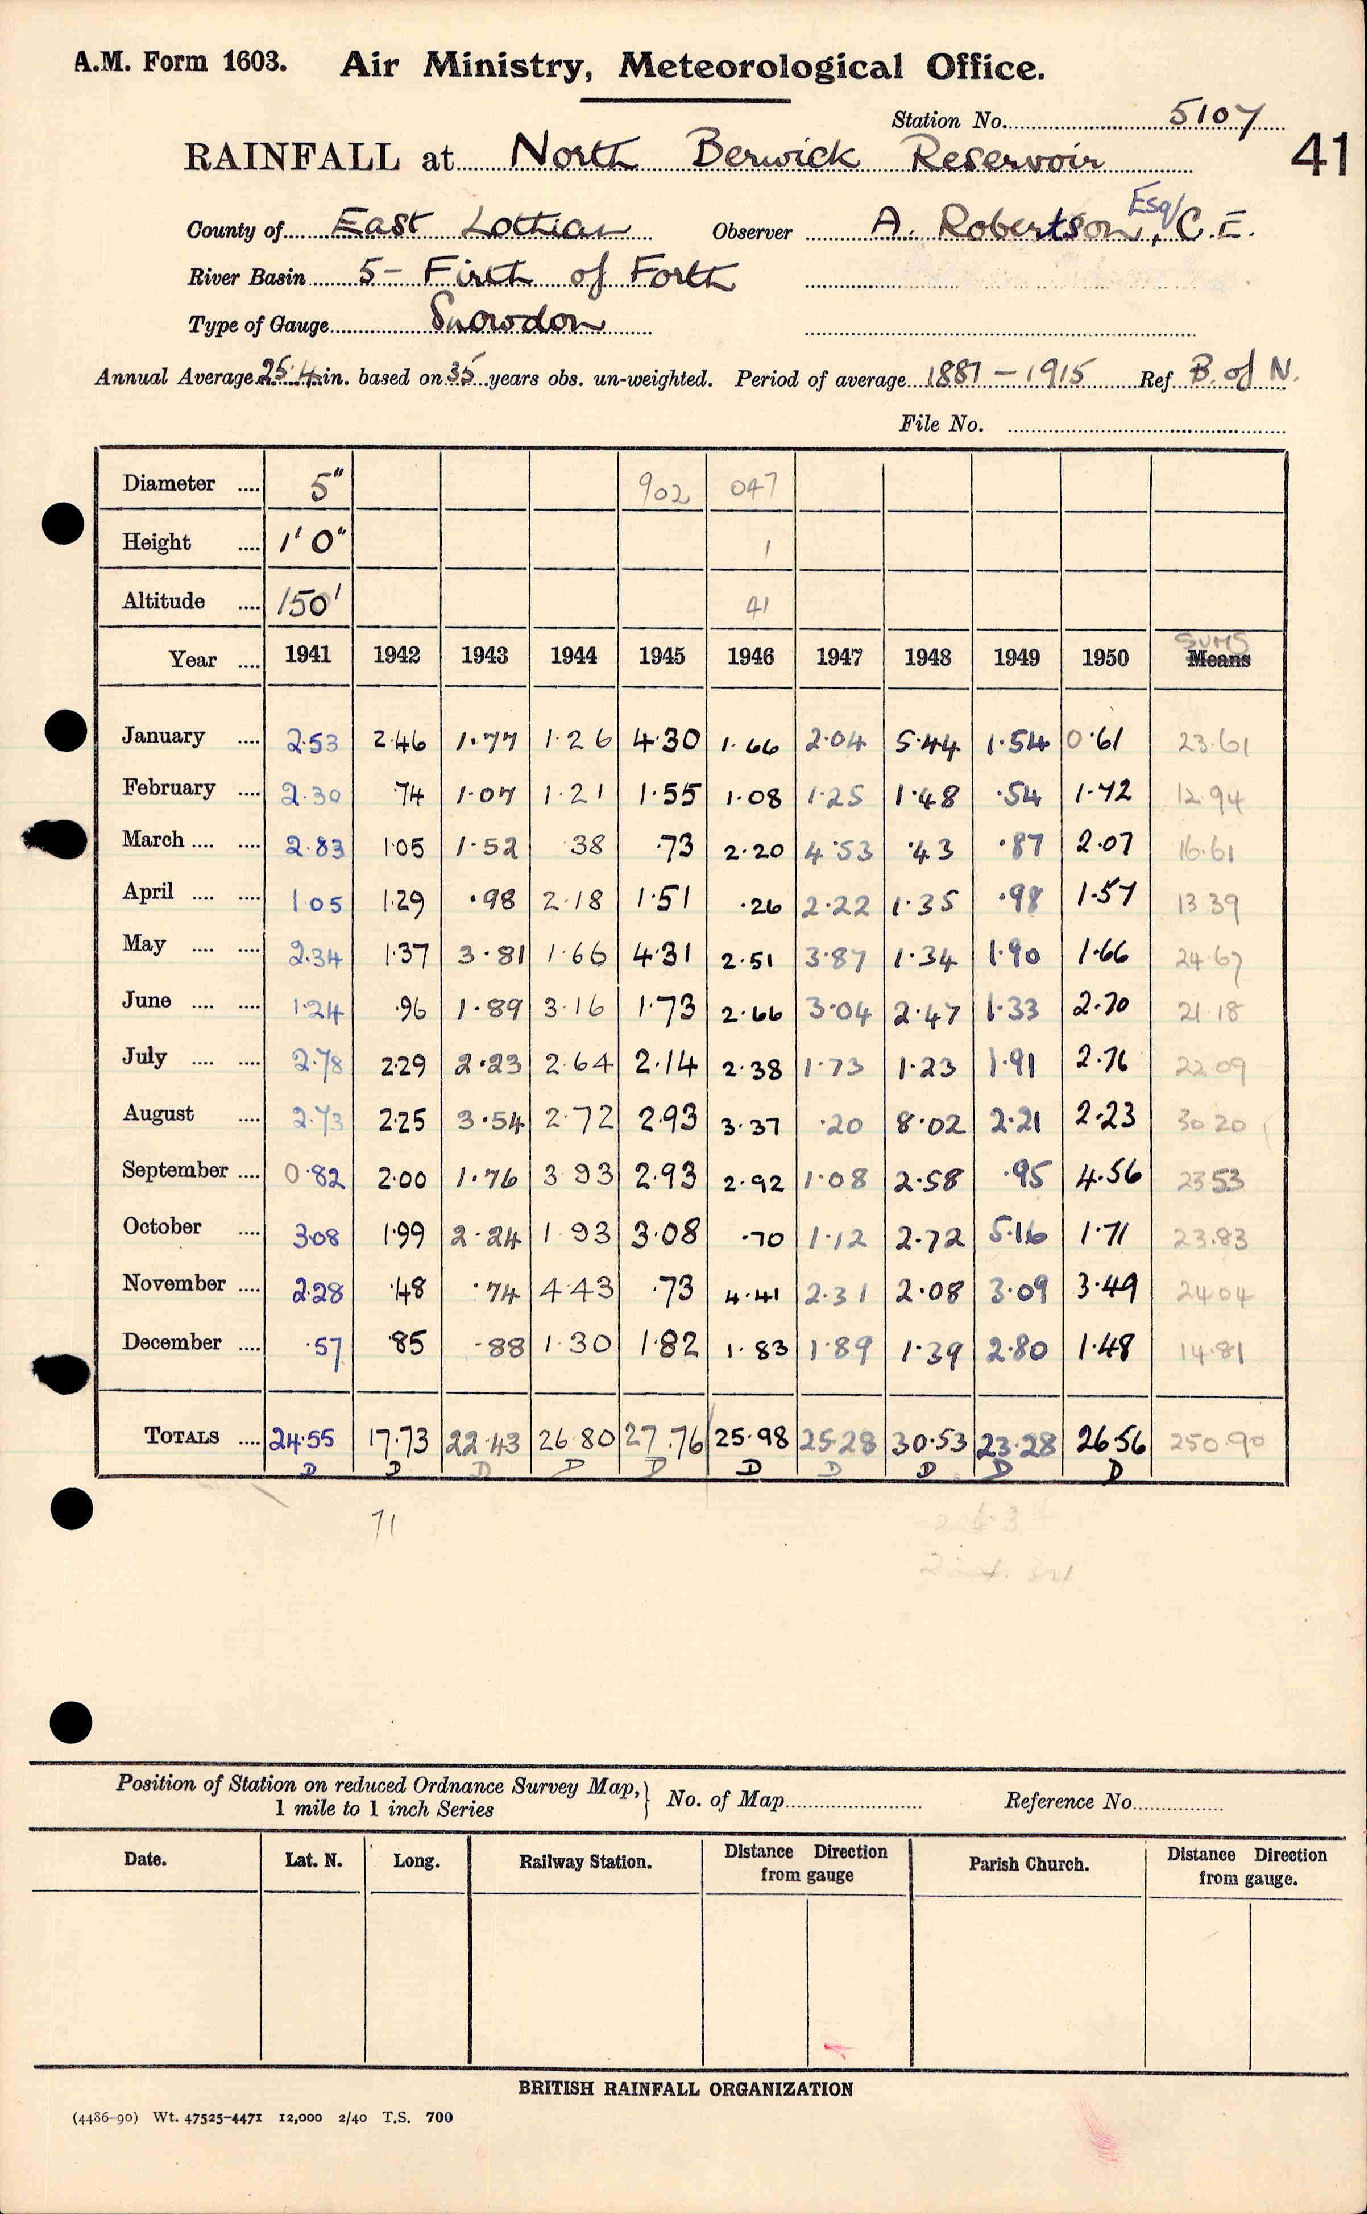 A.M. Form 1603. Air Ministry, Meteorological Office.
Station No. 5107
41
RAINFALL at North Berwick Reservoir
County of East Lothian Observer A. Robertson, Esq/ C.E.
River Basin 5 - Firth of Forth
Type of Gauge Snowdon
Annual Average 25.4 in. based on 35 years obs. un-weighted. Period of average 1881 - 1915 Ref B. of N.
File No.
Diameter .... 5" 902 047
Height .... 1' 0" 1
Altitude .... 150' 41
SUMS
Year .... 1941 1942 1943 1944 1945 1946 1947 1948 1949 1950 Means
January .... 2.53 2.46 1.77 1.26 4.30 1.66 2.04 5.44 1.54 0.61 23.61
February .... 2.30 74 1.07 1.21 1.55 1.08 1.25 1.48 .54 1.72 12.94
March .... .... 2.83 1.05 1.52 38 .73 2.20 4.53 .43 .87 2.07 16.61
April .... .... 1.05 1.29 .98 2.18 1.51 .26 2.22 1.35 .98 1.57 13.39
May .... .... 2.34 1.37 3.81 1.66 4.31 2.51 3.87 1.34 1.90 1.66 24.67
June .... .... 1.24 .96 1.89 3.16 1.73 2.66 3.04 2.47 1.33 2.70 21.18
July .... .... 2.78 2.29 2.23 2.64 2.14 2.38 1.73 1.23 1.91 2.76 22.09
August .... 2.73 2.25 3.54 2.72 2.93 3.37 .20 8.02 2.21 2.23 30.20
September .... 0.82 2.00 1.76 3.93 2.93 2.92 1.08 2.58 .95 4.56 23.53
October .... 3.08 1.99 2.24 1.93 3.08 .70 1.12 2.72 5.16 1.71 23.83
November .... 2.28 .48 .74 4.43 .73 4.41 2.31 2.08 3.09 3.49 24.04
December .... .57 .85 .88 1.30 1.82 1.83 1.89 1.39 2.80 1.48 14.81
TOTALS .... 24.55 17.73 22.43 26.80 27.76 25.98 25.28 30.53 23.28 26.56 250.90
D D D D D D D D D D
71
Position of Station on reduced Ordnance Survey Map, } No. of Map Reference No.
1 mile to 1 inch Series
Date. Lat. N. Long. Railway Station. Distance Direction from gauge Parish Church. Distance Direction from gauge.
BRITISH RAINFALL ORGANIZATION
(4486-90) Wt. 47525-4471 12,000 2/40 T.S. 700